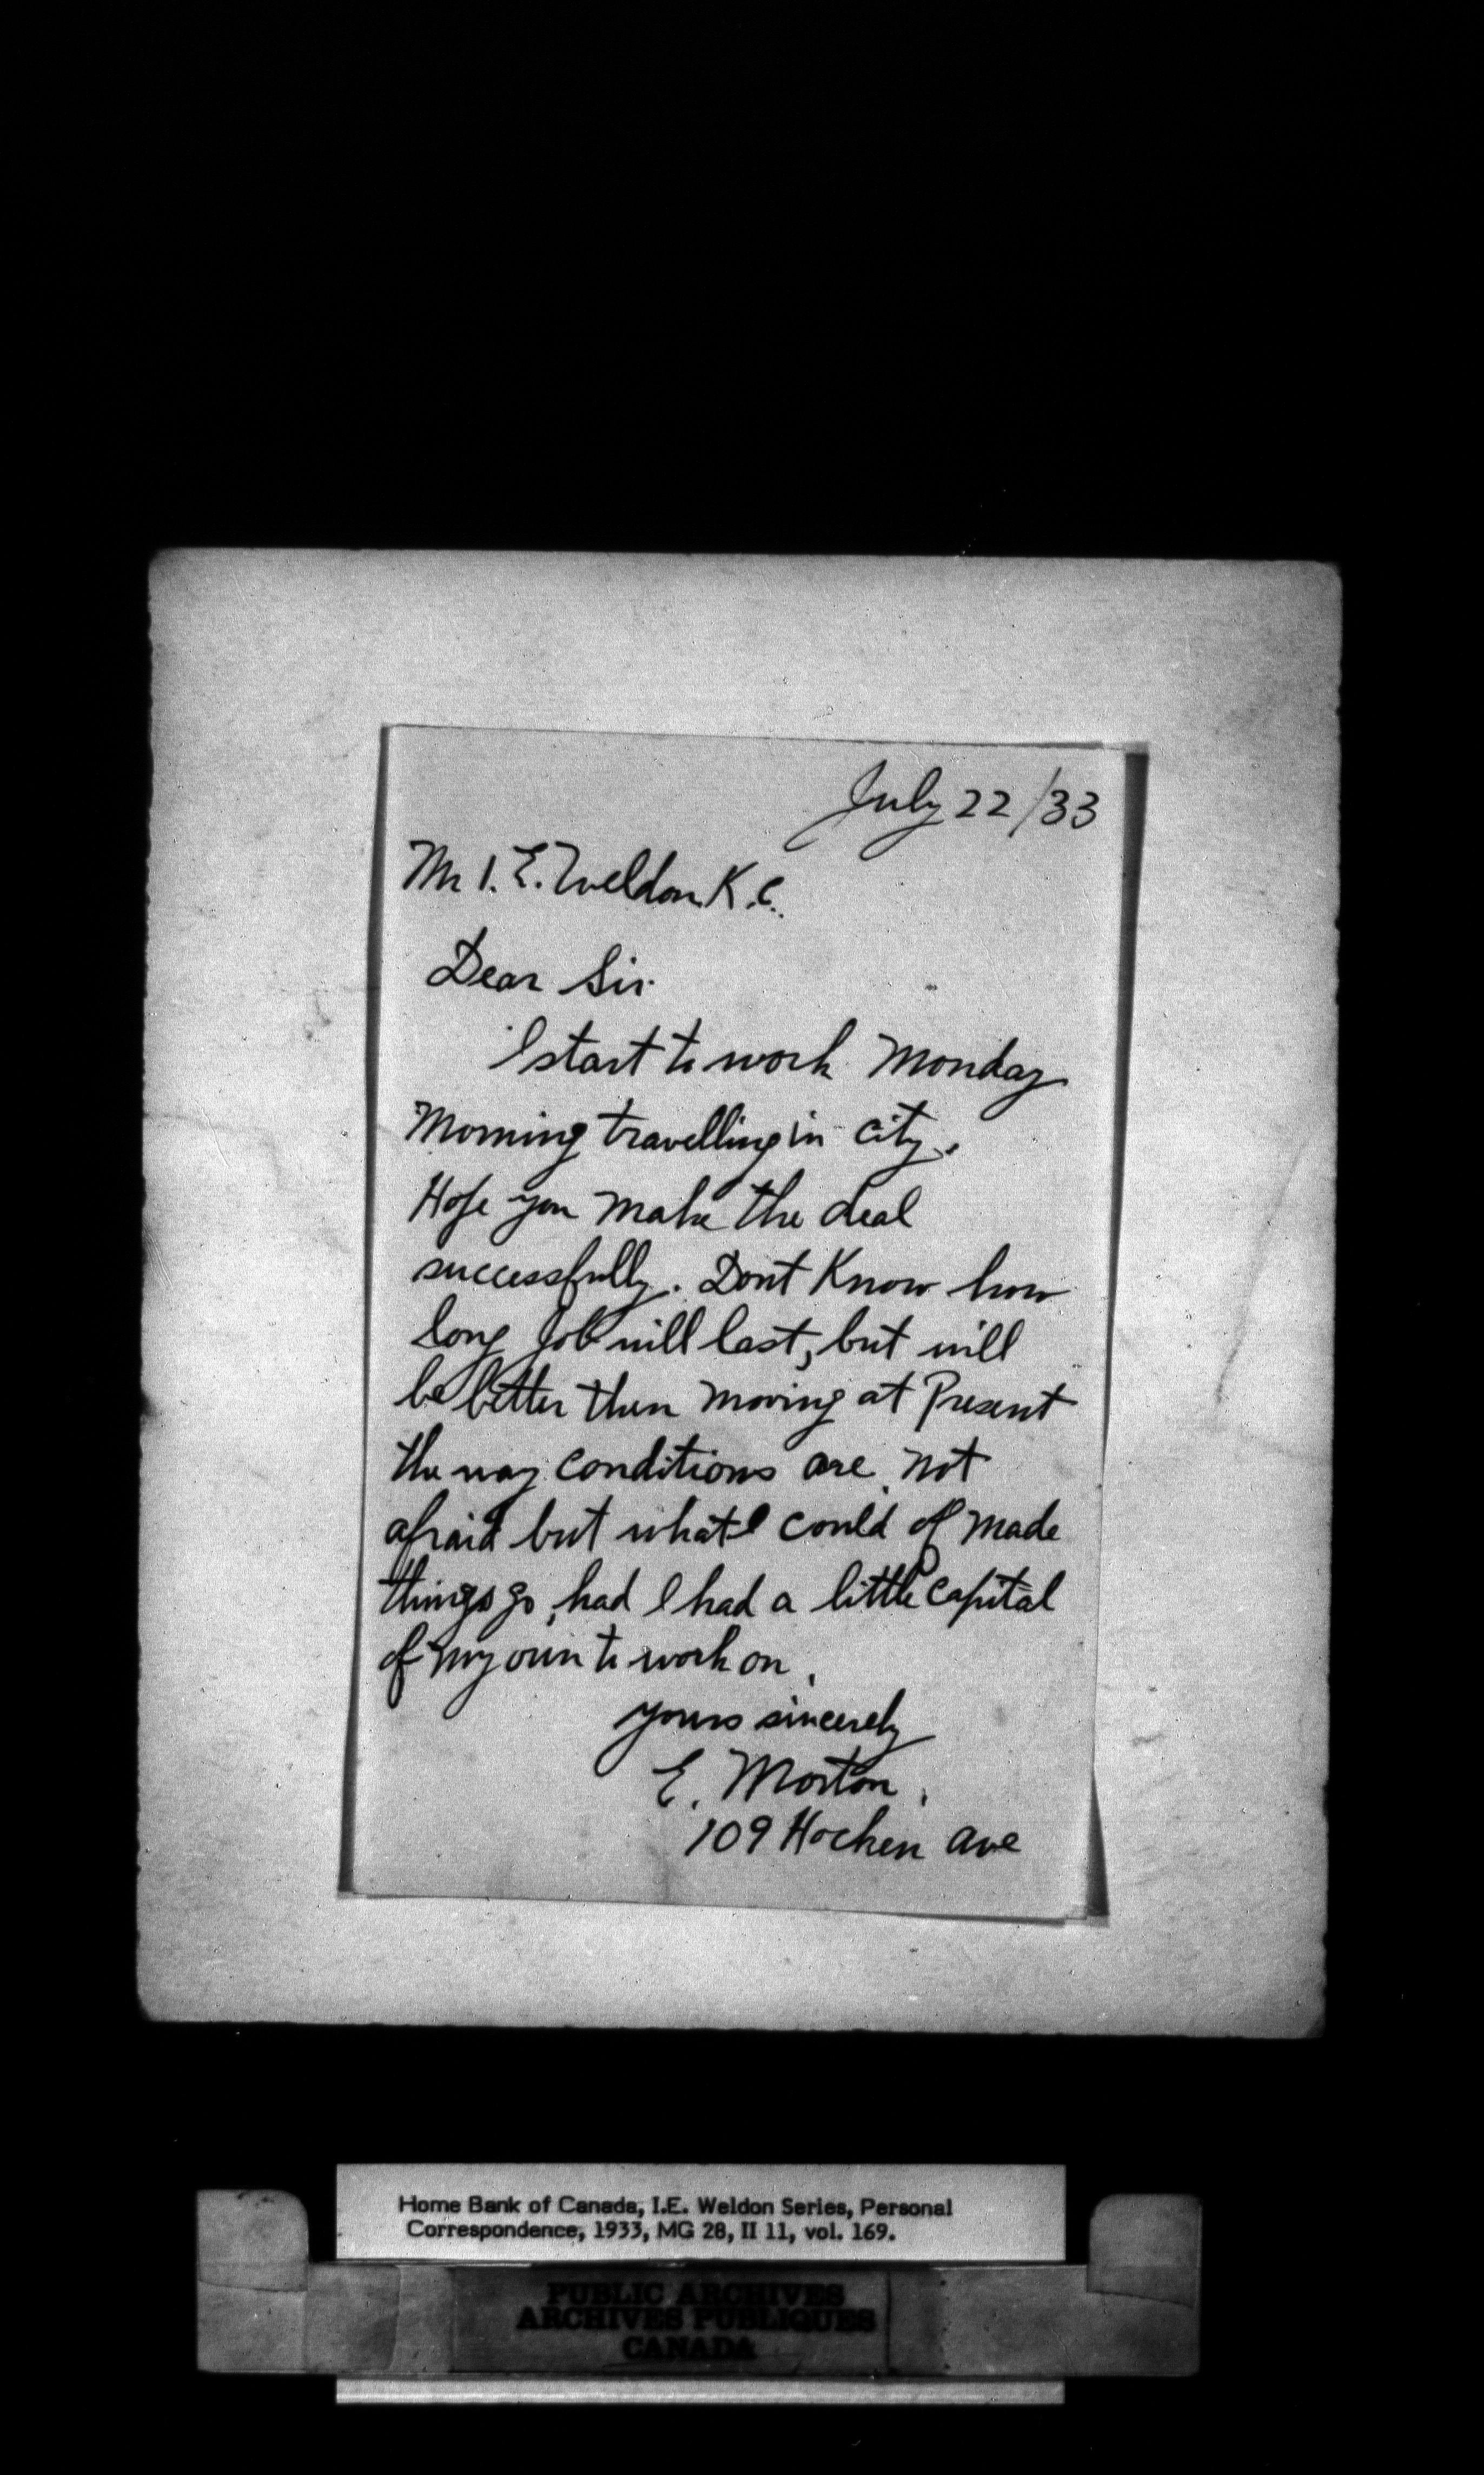 July 22/33
Mr I. E. Weldon K.C.
Dear Sir
I start to work Monday
Morning travelling in city.
Hope you make the deal
successfully. Dont Know how
long job will last, but will
be better then moving at Present
the way conditions are. not
afraid but what I could of made
things go, had I had a little capital
of my own to work on.
yours sincerely
E. Morton.
109 Hocken Ave
Home Bank of Canada, I.E. Weldon Series, Personal
Correspondence, 1933, MG 28, II 11, vol. 169.
PUBLIC ARCHIVES
ARCHIVES PUBLIQUES
CANADA